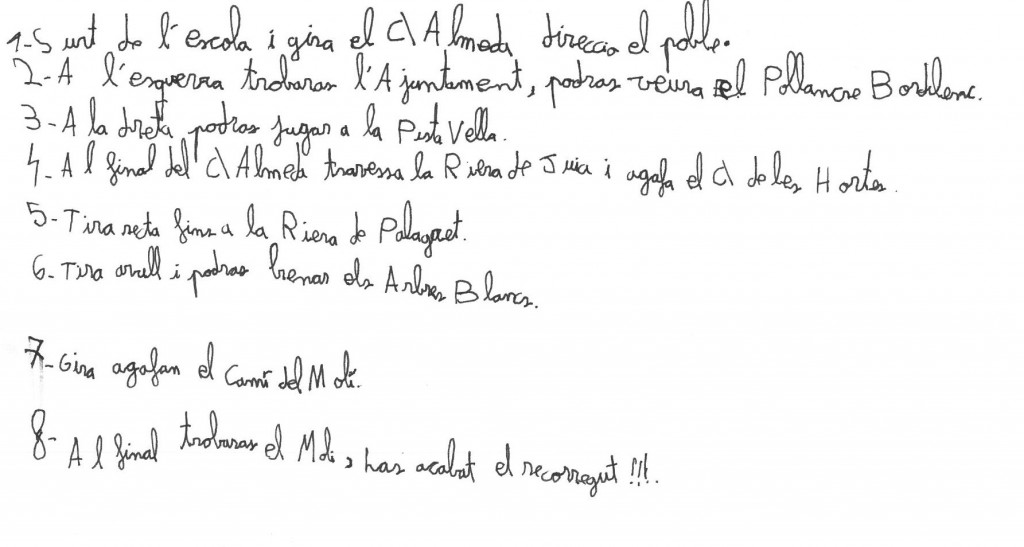 1-Surt de l'escola i gira el C\ Almeda direccio el poble.
2-A l'esquerra trobaras l'Ajuntament, podras veura el Pollancre Bordilenc.
3-A la dreta podras jugar a la Pista Vella.
4-Al final del C\ Almeda travessa la Riera de Juia i agafa el C\ de les Hortes.
5-Tira reta fins a la Riera de Palagret.
6-Tira avall i podras brenar els Arbres Blancs.
7-Gira agafan el Camí del Molí.
8-Al final trobaras el Moli, has acabat el recorregut !!!.